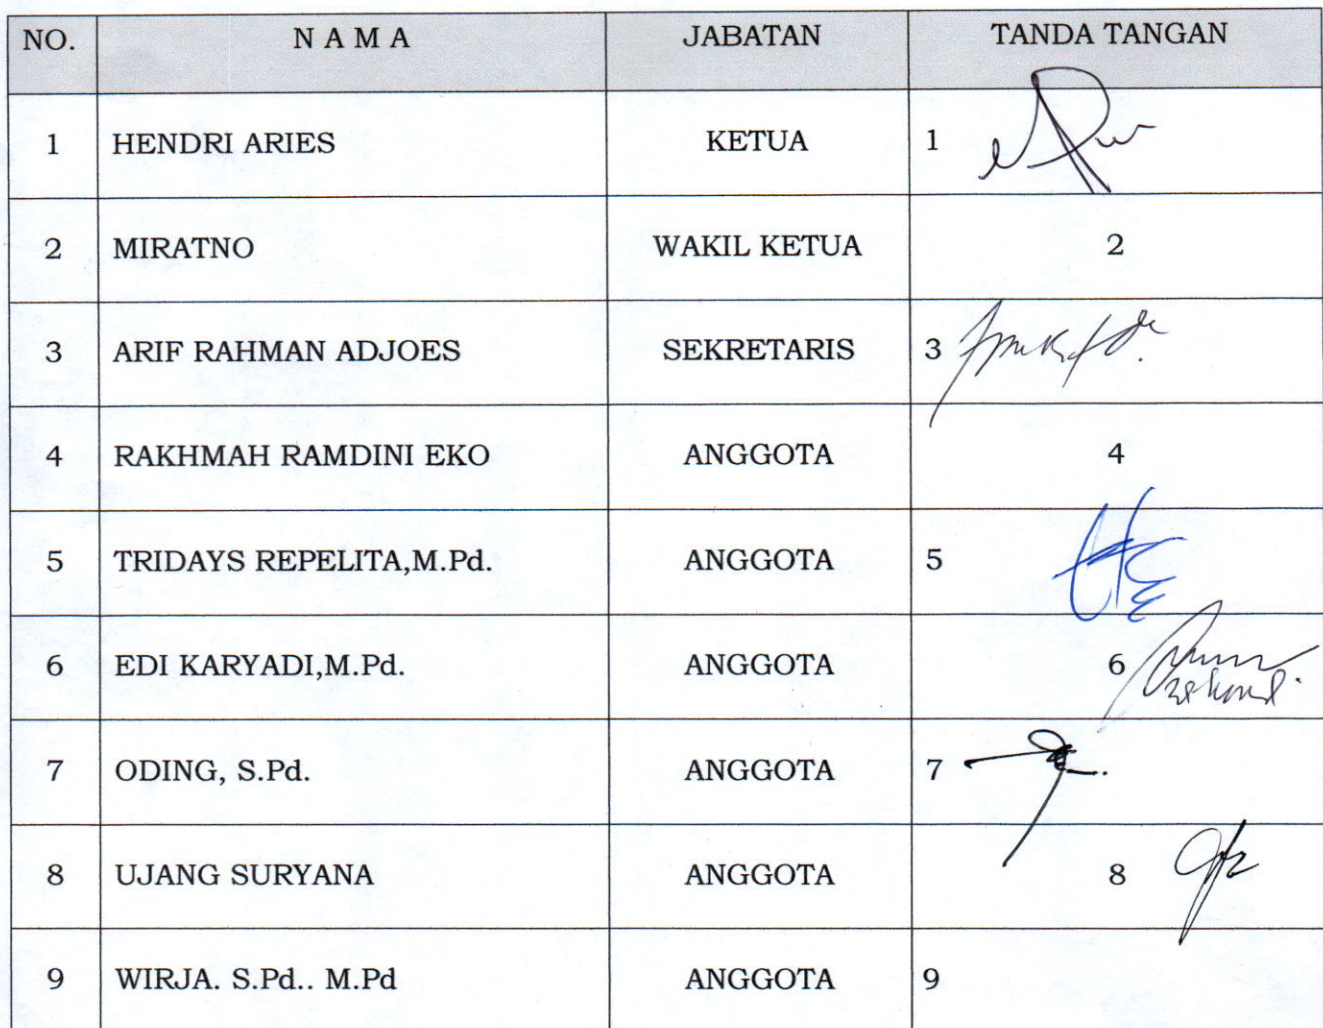 NO. N A M A JABATAN TANDA TANGAN
1 HENDRI ARIES KETUA 1
2 MIRATNO WAKIL KETUA 2
3 ARIF RAHMAN ADJOES SEKRETARIS 3
4 RAKHMAH RAMDINI EKO ANGGOTA 4
5 TRIDAYS REPELITA,M.Pd. ANGGOTA 5
6 EDI KARYADI,M.Pd. ANGGOTA 6
7 ODING, S.Pd. ANGGOTA 7
8 UJANG SURYANA ANGGOTA 8
9 WIRJA. S.Pd.. M.Pd ANGGOTA 9